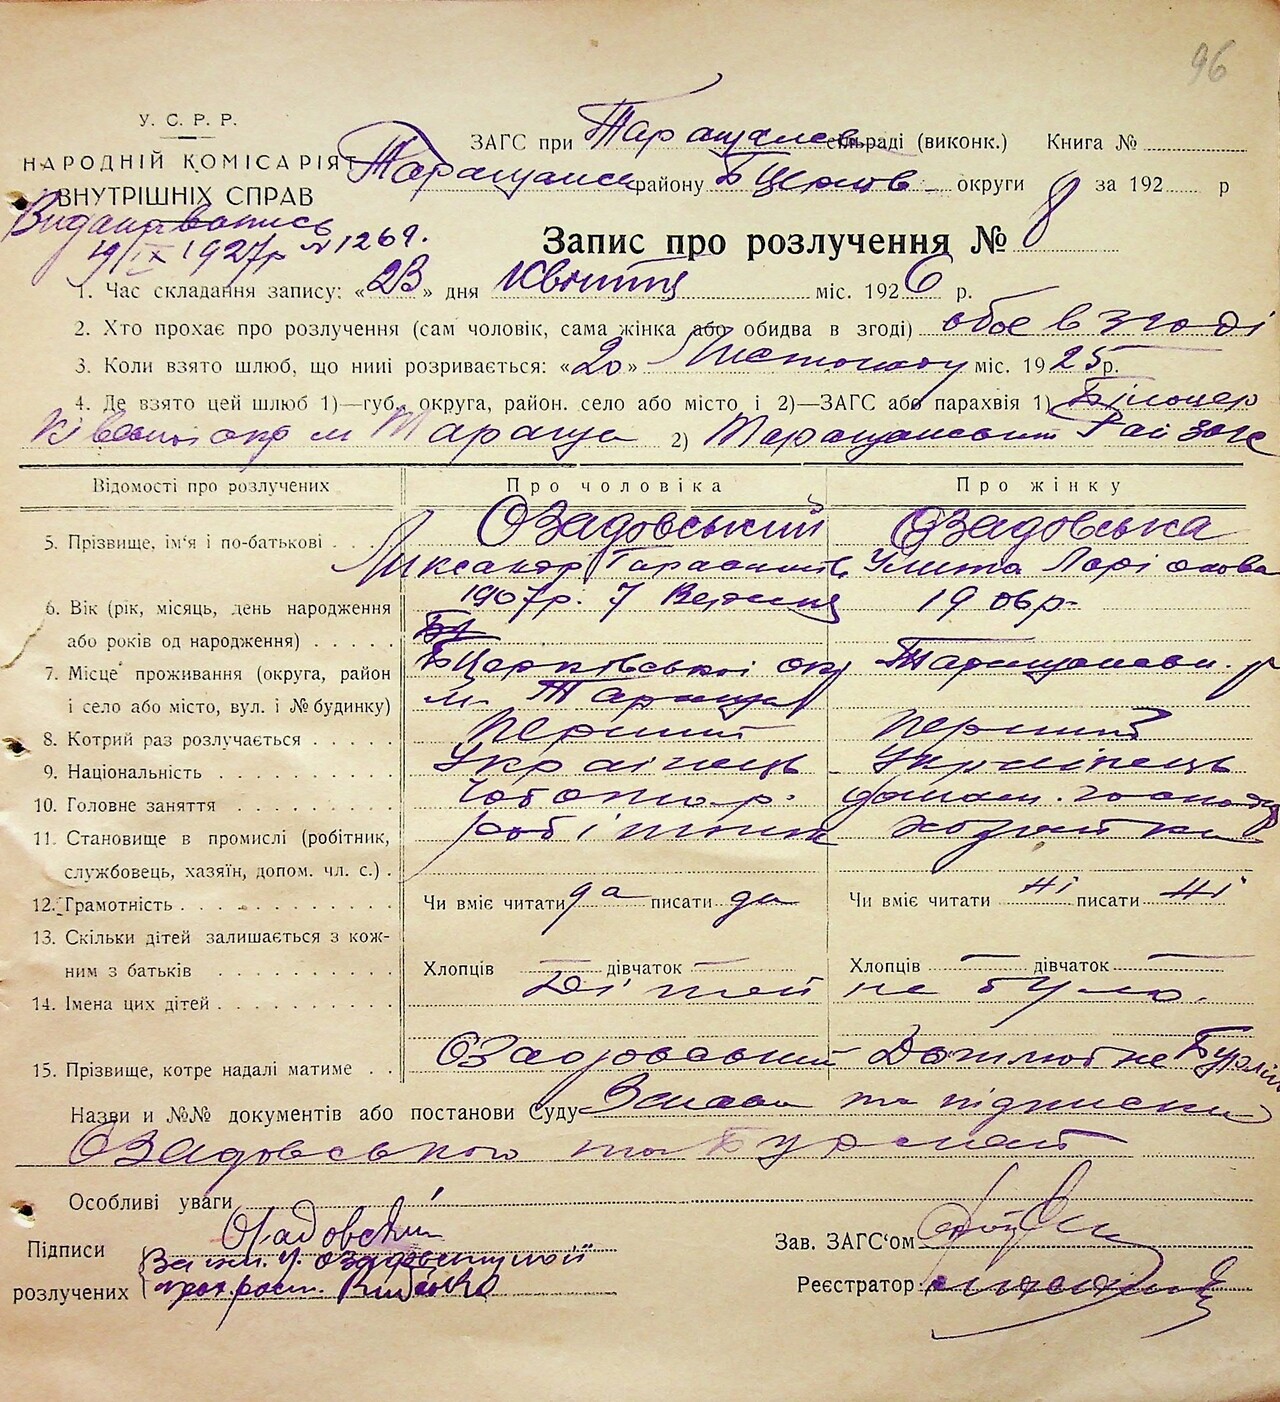 96
У. С. Р. Р.
НАРОДНІЙ КОМІСАРІЯТ
ВНУТРІШНІХ СПРАВ
ЗАГС при сельраді (виконк.) Книга №
району Б Церков округи за 192 р
Видана вопись
19/IX 1927р № 1269.
Запис про розлучення № 8
1. Час складання запису: «23» дня Квітня міс. 1926 р.
2. Хто прохає про розлучення (сам чоловік, сама жінка або обидва в згоді) обое в згоді
3. Коли взято шлюб, що нині розривається: «20» Листопаду міс. 1925 р.
4. Де взято цей шлюб 1)—губ. округа, район. село або місто і 2)—ЗАГС або парахвія 1) Білоцер
ківської окр м Тараща 2) Таращанський Рай загс
Відомості про розлучених Про чоловіка Про жінку
5. Прізвище, ім'я і по-батькові Озадовський Озадовська
Улита Ларіонова
6. Вік (рік, місяць, день народження 1907р. 7 Вересня 1906р.
або років од народження)
7. Місце проживання (округа, район БЦерківської окр
і село або місто, вул. і № будинку) м. Тараща
8. Котрий раз розлучається перший перший
9. Національність Українець Українець
10. Головне заняття чоботар. домаш. господ
11. Становище в промислі (робітник, робітник хозяйка
службовець, хазяїн, допом. чл. с.)
12. Грамотність Чи вміє читати да писати да Чи вміє читати ні писати ні
13. Скільки дітей залишається з кож-
ним з батьків Хлопців — дівчаток — Хлопців — дівчаток —
14. Імена цих дітей Дітей не було.
15. Прізвище, котре надалі матиме Озадовський
Назви и №№ документів або постанови Суду Заява та підписки
Озадовського та
Особливі уваги
Підписи Озадовский
розлучених
Зав. ЗАГС'ом
Реєстратор